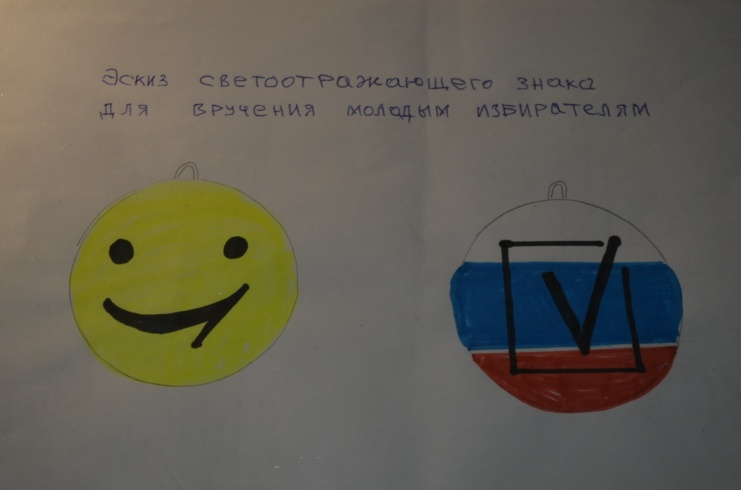 Эскиз светоотражающего знака
для вручения молодым избирателям